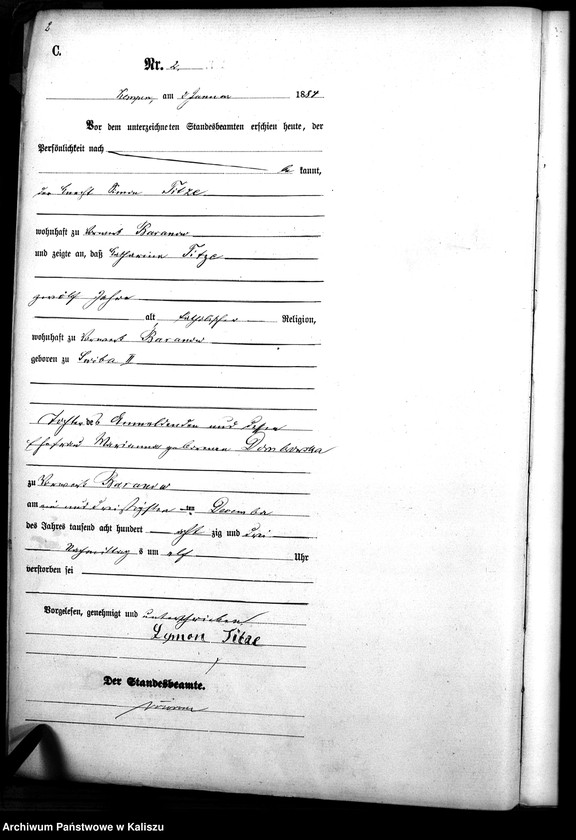 2
C.
Nr. 2.
Kempen, am 2 Januar 1884
Vor dem unterzeichneten Standesbeamten erschien heute, der
Persönlichkeit nach
be kannt,
der Knecht Simon Titze
wohnhaft zu Vorwerk Baranow
und zeigte an, daß Catharina Titze
zwölf Jahre
alt, katholischer Religion,
wohnhaft zu Vorwerk Baranow
geboren zu Swiba II
Tochter des Anmeldenden und dessen
Ehefrau Marianna geborenen Dombowska
zu Vorwerk Baranow
am ein und dreißigsten ten Dezember
des Jahres tausend acht hundert acht zig und drei
Nachmittag s um elf Uhr
verstorben sei
Vorgelesen, genehmigt und unterschrieben
Symon Titze
Der Standesbeamte.
Archiwum Państwowe w Kaliszu